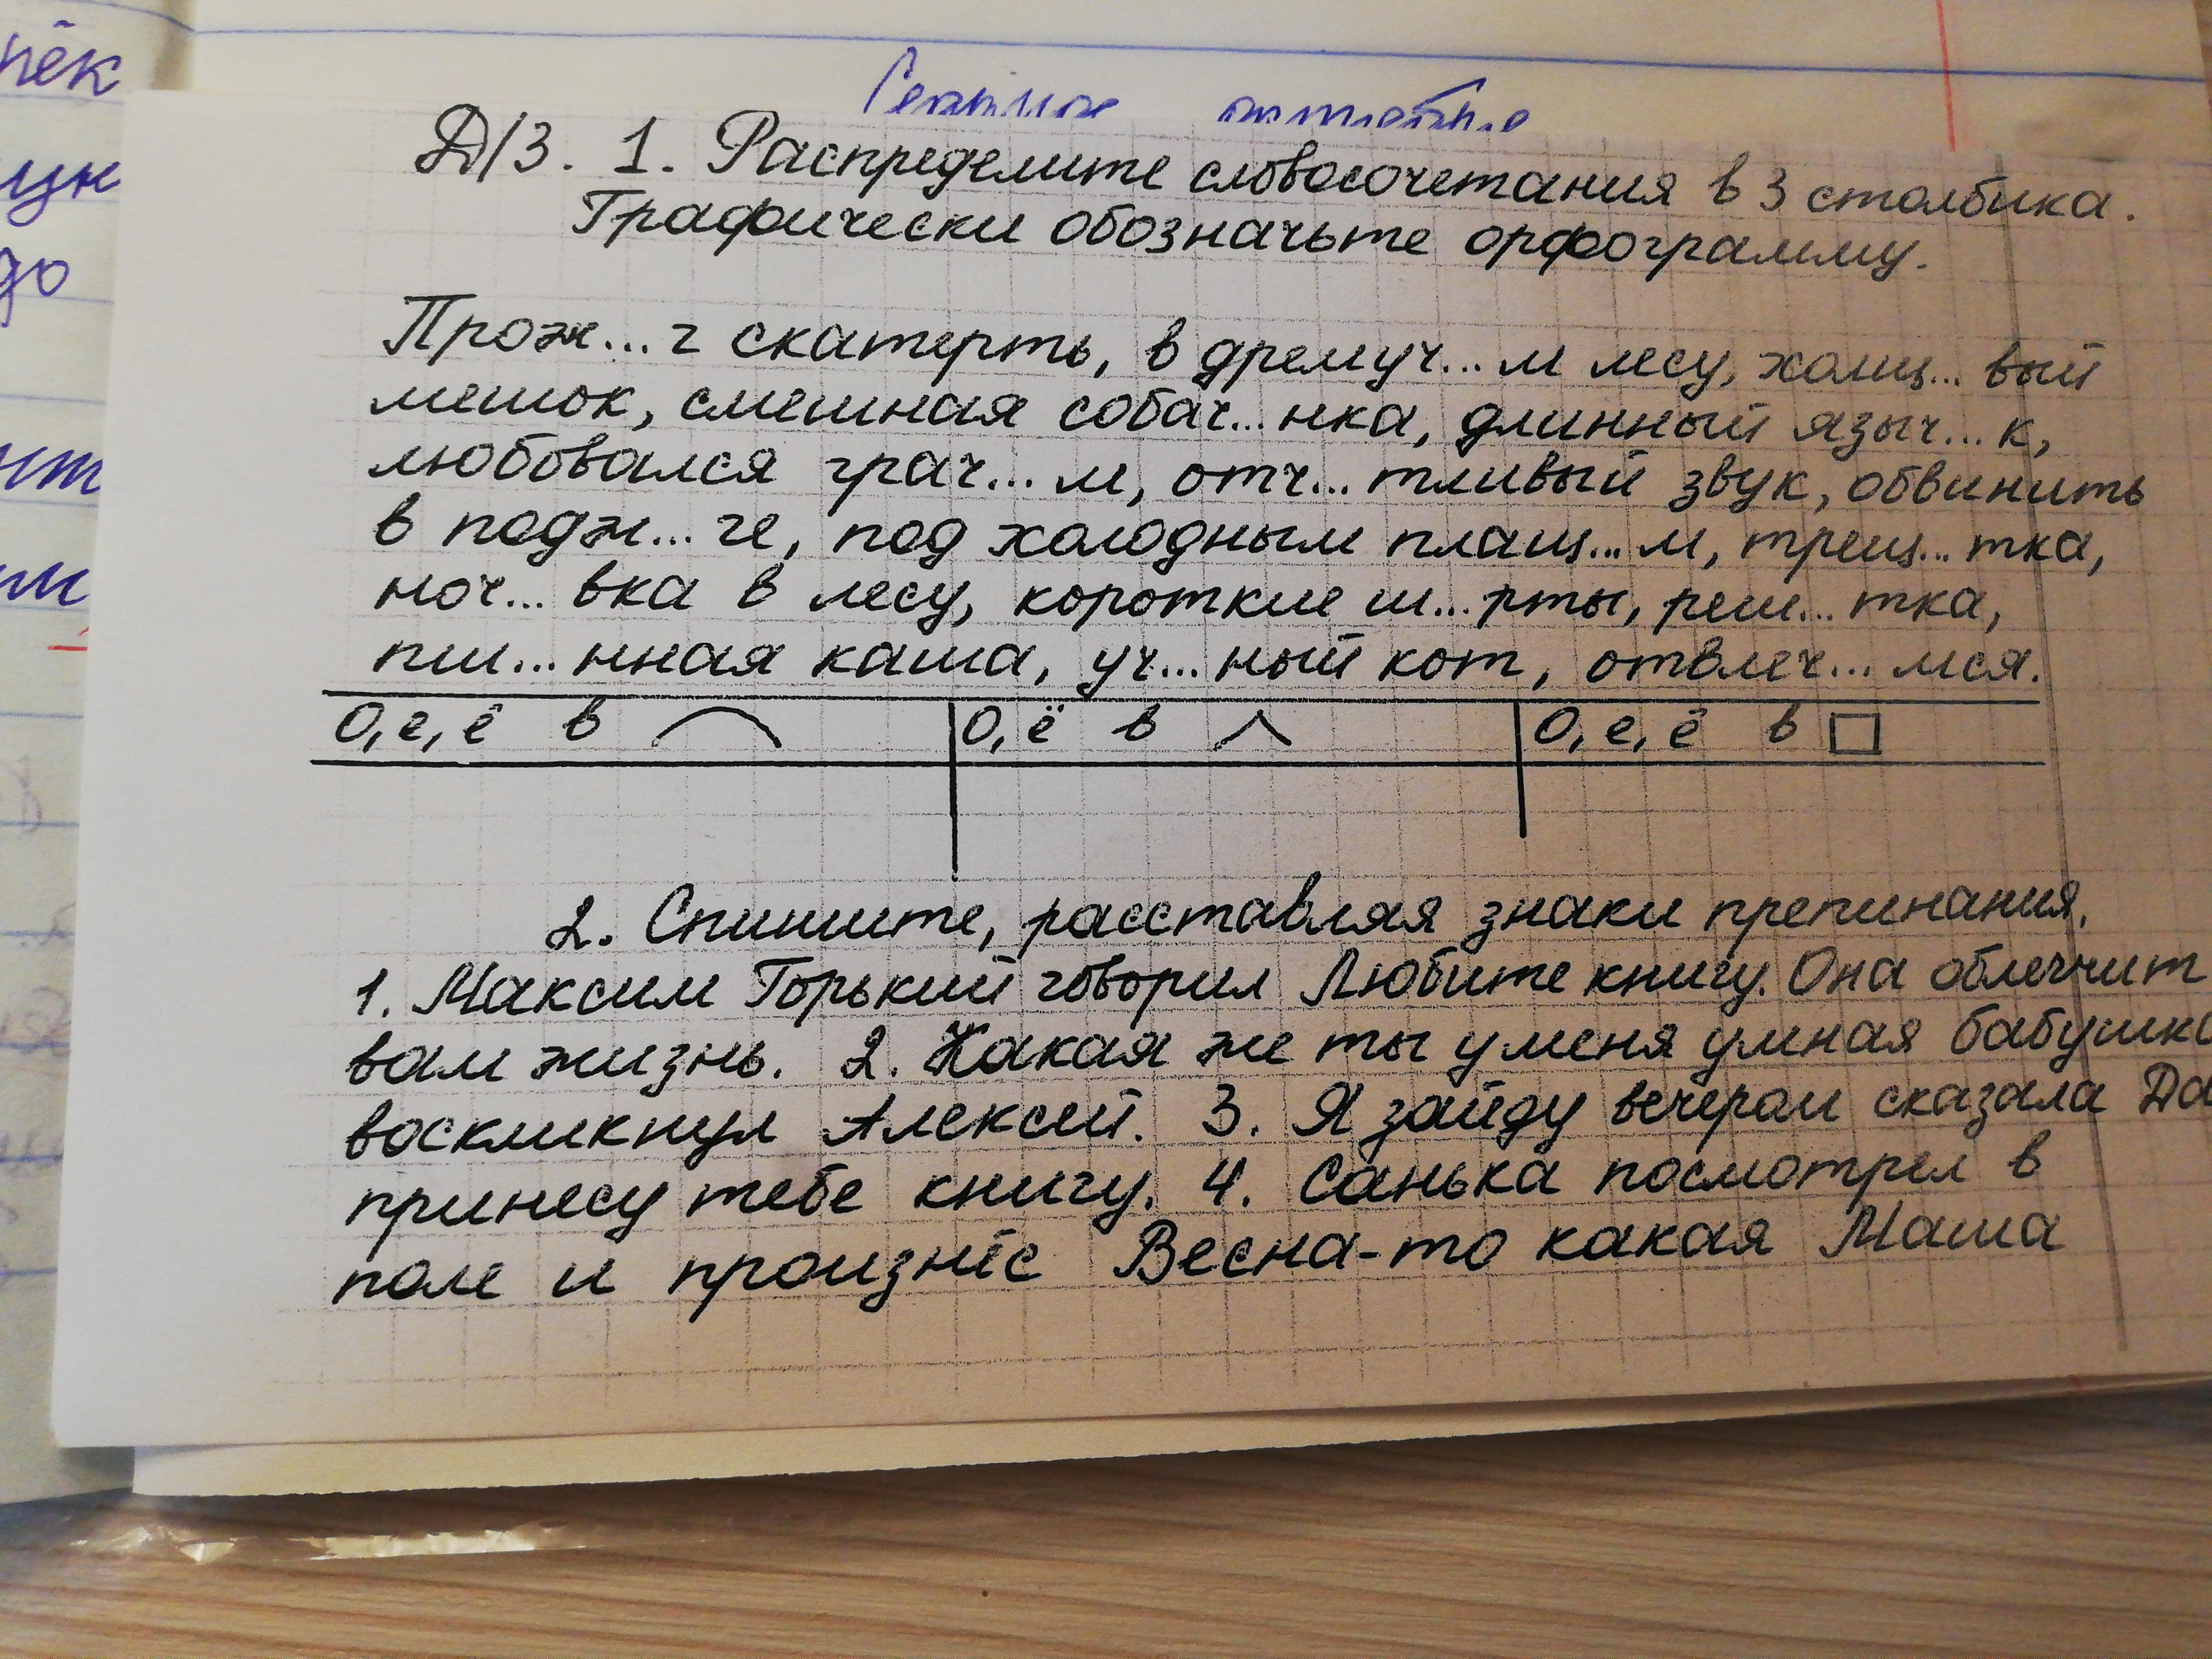 пёк
Д/З. 1. Распределите словосочетания в 3 столбика.
Графически обозначьте орфограмму.
до
Прож...г скатерть, в дремуч...м лесу, холщ...вый
мешок, смешная собач...нка, длинный языч...к,
любовался грач...м, отч...тливый звук, обвинить
в подж...ге, под холодным плащ...м, трещ...тка,
ноч...вка в лесу, короткие ш...рты, реш...тка,
пш...нная каша, уч...ный кот, отвлеч...мся.
О, е, ё в
О, ё в
О, е, ё в
2. Спишите, расставляя знаки препинания.
1. Максим Горький говорил Любите книгу. Она облегчит
вам жизнь. 2. Какая же ты у меня умная бабушка
воскликнул Алексей. 3. Я зайду вечером сказала Да
принесу тебе книгу. 4. Санька посмотрел в
поле и произнёс Весна-то какая Маша